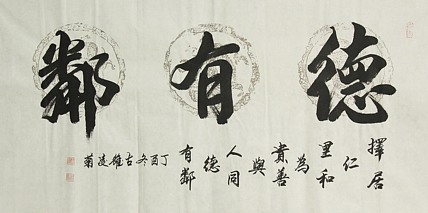 德有鄰
擇居
仁
里和
為
貴善
與
人同
德
有鄰
丁酉冬古
菊